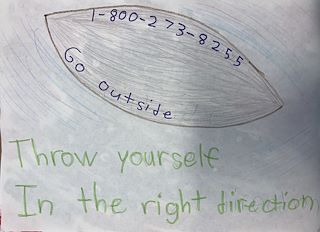 1-800-273-8255
Go outside
Throw yourself
In the right direction